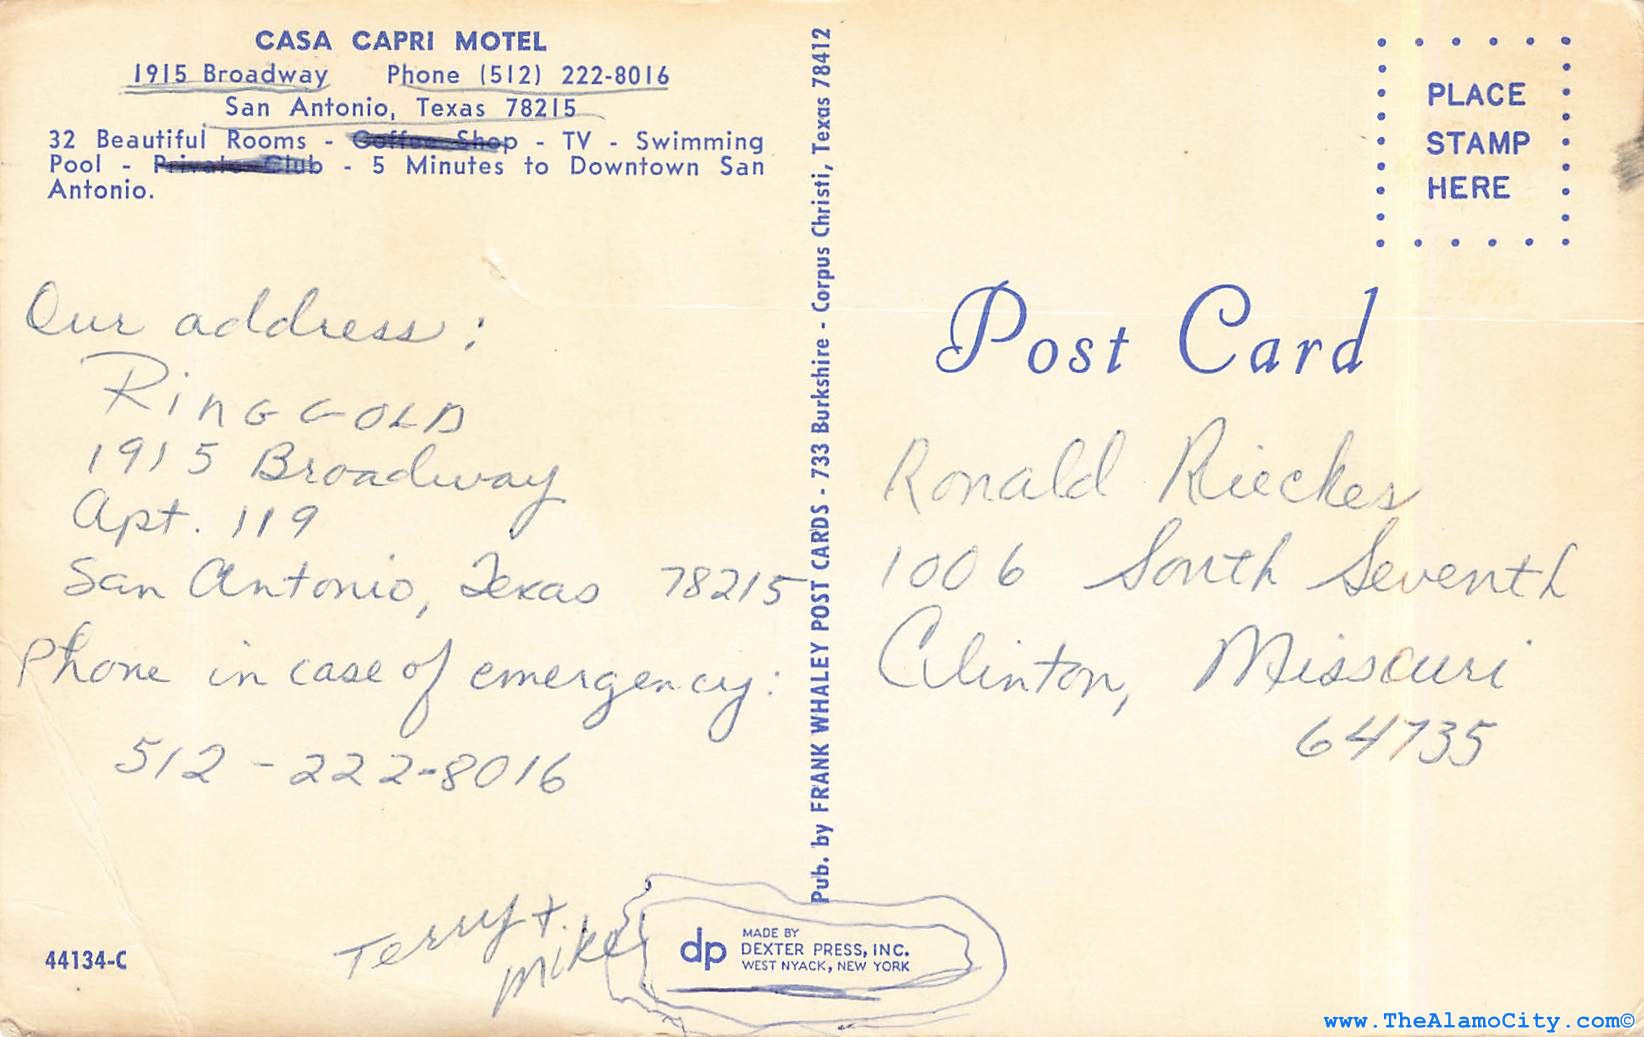 CASA CAPRI MOTEL
1915 Broadway Phone (512) 222-8016
San Antonio, Texas 78215
32 Beautiful Rooms - Coffee Shop - TV - Swimming
Pool - Private Club - 5 Minutes to Downtown San
Antonio.
Our address:
RingGOLD
1915 Broadway
Apt. 119
San Antonio, Texas 78215
Phone in case of emergency:
512-222-8016
Terry +
Mike
44134-C
Pub. by FRANK WHALEY POST CARDS - 733 Burkshire - Corpus Christi, Texas 78412
dp
MADE BY
DEXTER PRESS, INC.
WEST NYACK, NEW YORK
PLACE
STAMP
HERE
Post Card
Ronald Rieckes
1006 South Seventh
Clinton, Missouri
64735
www.TheAlamoCity.com©